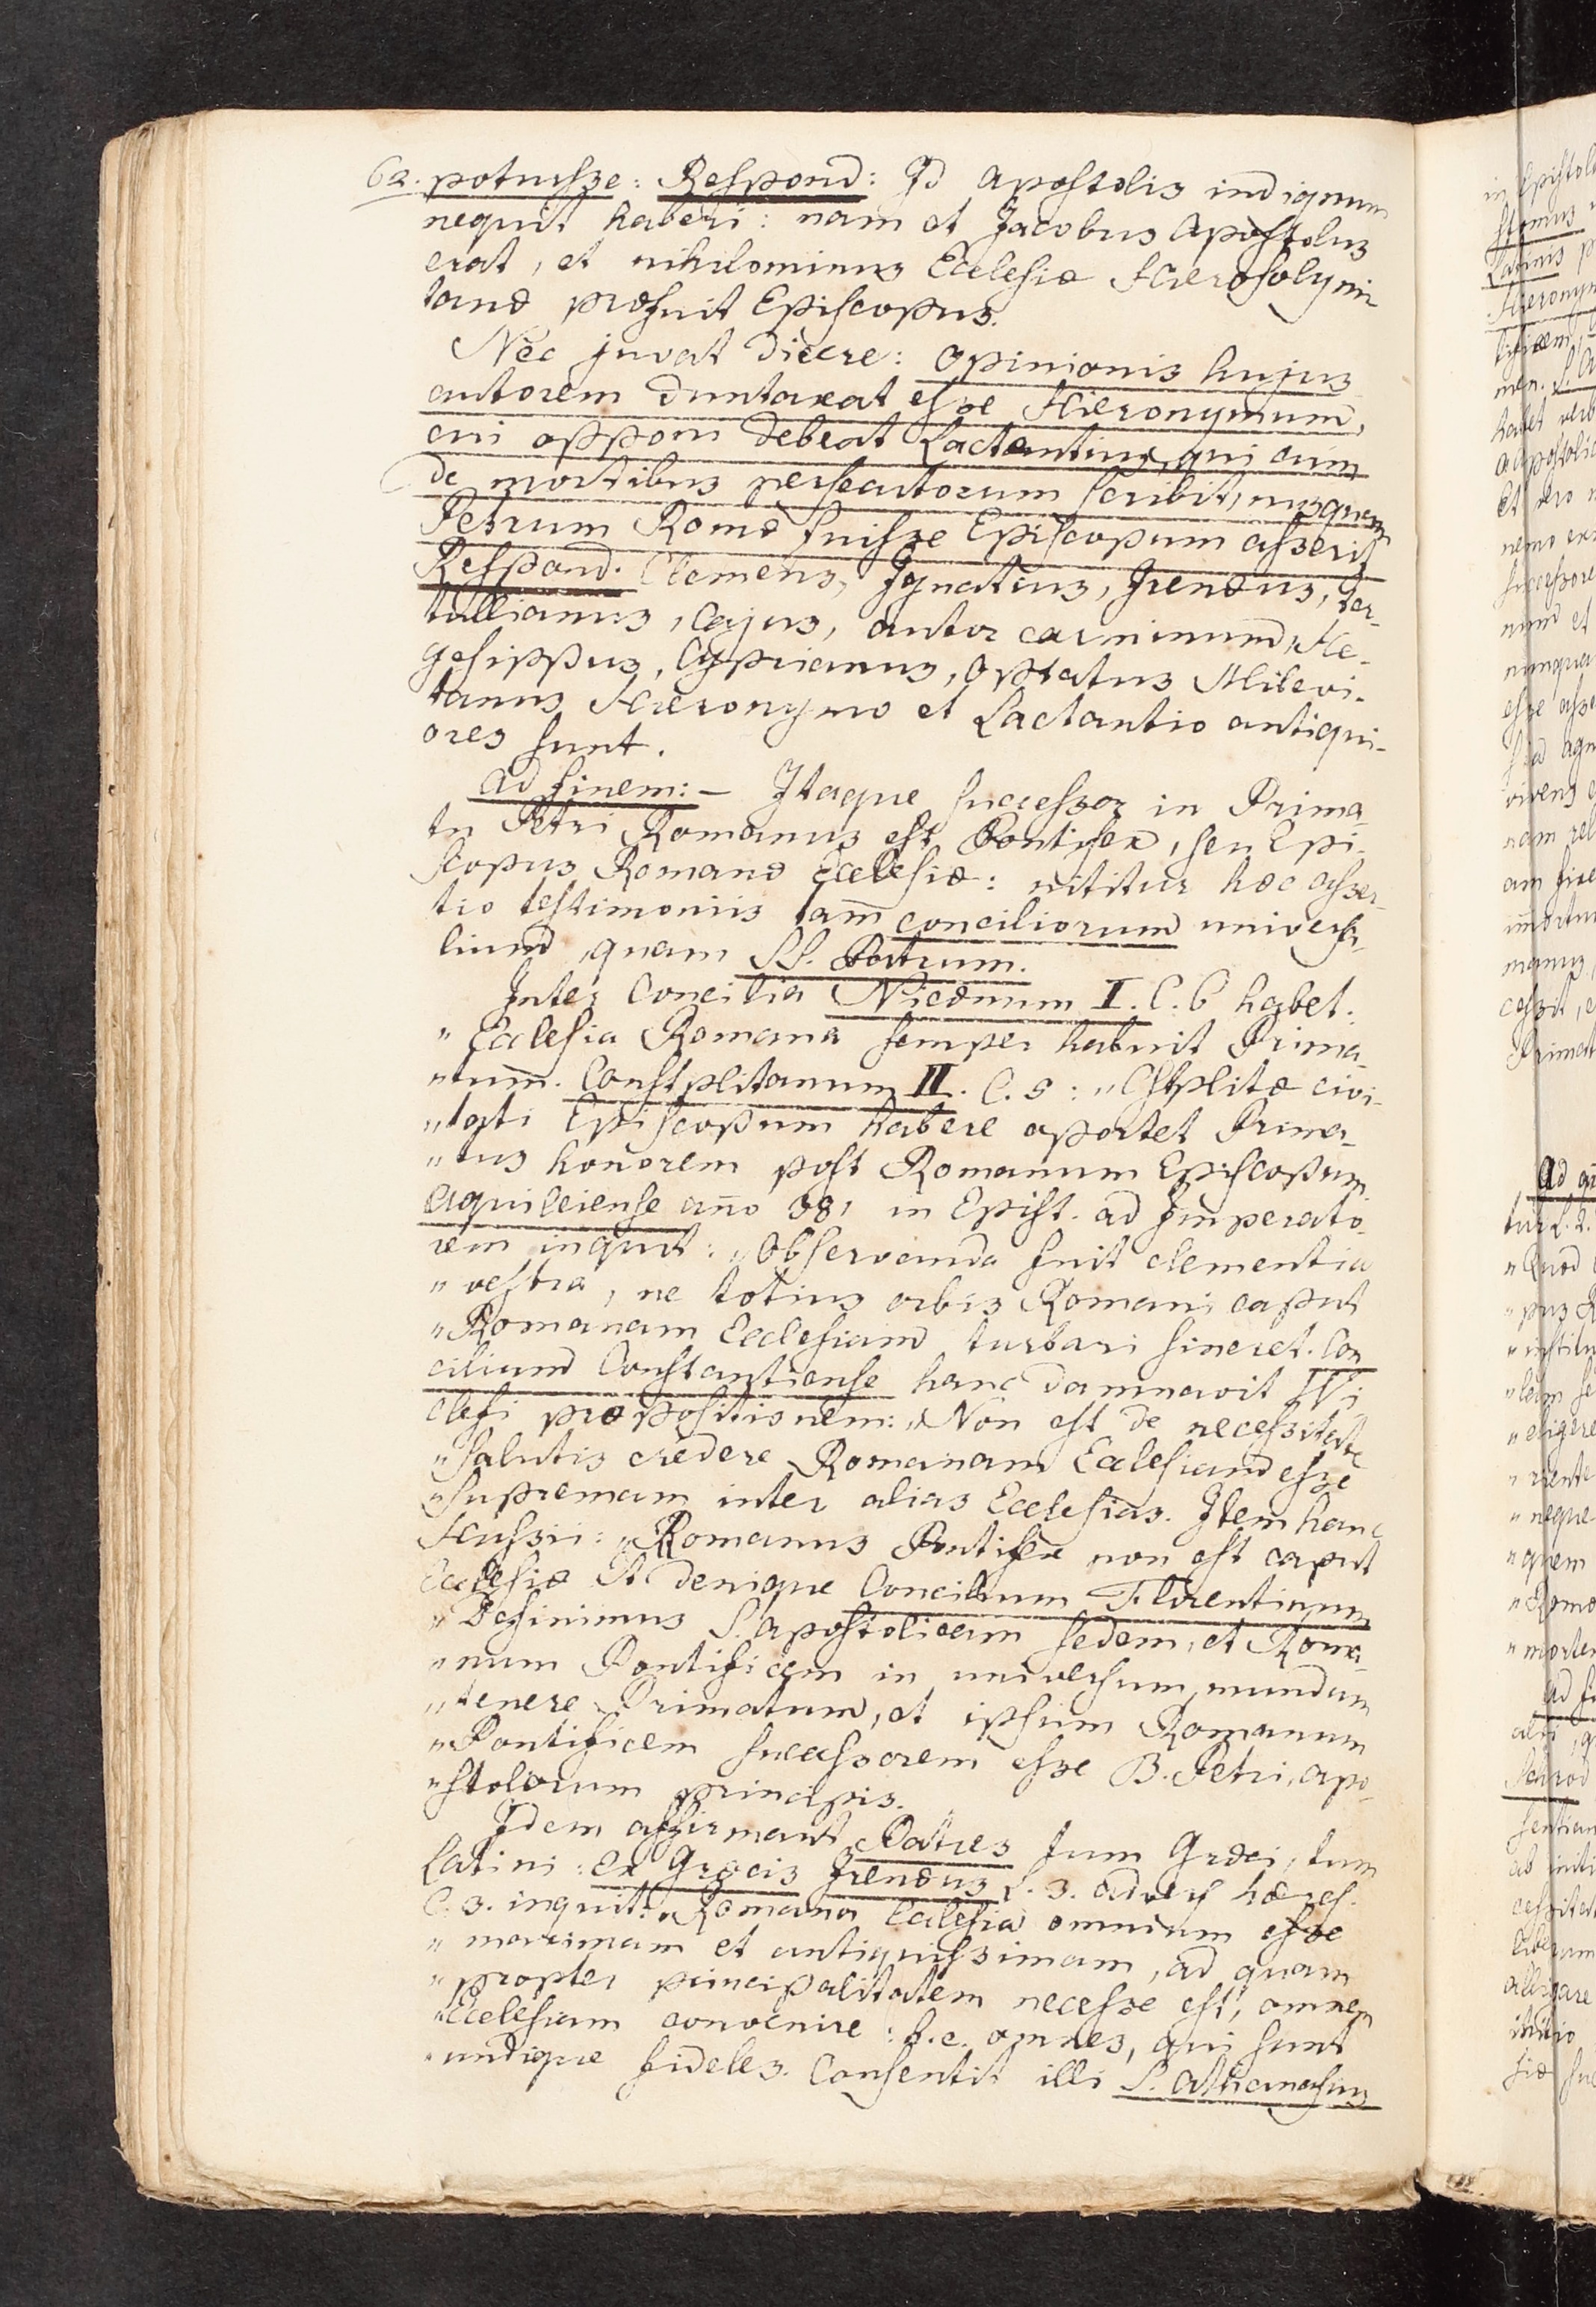 62. potuisse: Respond: Id Apostolis indignum
nequit haberi: nam et Jacobus Apostolus
erat, et nihilominus Ecclesiæ Hierosolymi-
tanæ præfuit Episcopus.
Nec juvat dicere: opinionis hujus
autorem duntaxat esse Hieronymum,
cui opponi debeat Lactantius, qui cum
de mortibus persecutorum scribit, nusquam
Petrum Romæ fuisse Episcopum asserit
Respond. Clemens, Ignatius, Irenæus, Ter-
tullianus, Cajus, autor carminum, He-
gesippus, Cyprianus, Optatus Milevi-
tanus Hieronymo et Lactantio antiqui-
ores sunt.
Ad finem: – Itaque successor in Prima-
tu Petri Romanus est Pontifex, seu Epi-
scopus Romanæ Ecclesiæ: nititur hæc asser-
tio testimoniis tam conciliorum universa-
lium, quam SS. Patrum.
Inter Concilia Nicænum I. C. 6 habet:
" Ecclesia Romana semper habuit Prima-
" tum. Constplitanum II. C. 5: " Cstplitæ civi-
" tati Episcopum habere oportet Prima-
" tus honorem post Romanum Episcopum.
Aquileiense año 381 in Epist. ad Imperato-
rem inquit: " Observanda fuit clementia
" vestra, ne totius orbis Romani caput
" Romanam Ecclesiam turbari sineret. Con
cilium Constantiense hanc damnavit Wi-
clefi præpositionem: " Non est de necessitate
" salutis credere Romanam Ecclesiam esse
" supremam inter alias Ecclesias. Item hanc
Hussii: " Romanus Pontifex non est caput
Ecclesiæ Et denique Concilium Florentinum
" Definimus S. Apostolicam sedem, et Roma-
" num Pontificem in universum mundum
" tenere Primatum, et ipsum Romanum
" Pontificem successorem esse B. Petri, apo-
" stolorum principis.
Idem affirmant Patres tum Græci, tum
Latini: ex Græcis Irenæus L. 3. advers hæres.
C. 3. inquit: " Romana Ecclesia omnium esse
" maximam et antiquissimam, ad quam
" propter principalitatem necesse est, omnem
" Ecclesiam convenire: h.e. omnes, qui sunt
" undique fideles. Consentit illi S. Athanasius